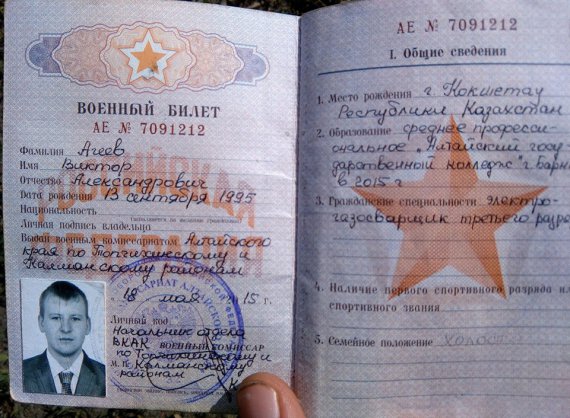 ВОЕННЫЙ БИЛЕТ
АЕ № 7091212
Фамилия Агеев
Имя Виктор
Отчество Александрович
Дата рождения 13 сентября 1995
Национальность
Личная подпись владельца
Выдан военным комиссариатом Алтайского
края по Топчихинскому и
Калманскому районам
18 мая 2015 г.
Личный код
Начальник отдела
ВКАК ВОЕННЫЙ КОМИССАР
по Топчихинскому и
М.П. Калманскому
районам
АЕ № 7091212
I. Общие сведения
1. Место рождения г. Кокшетау
Республики Казахстан
2. Образование среднее професси-
ональное "Алтайский госу-
дарственный колледж" г. Барн
в 2015 г
3. Гражданские специальности электро-
газосварщик третьего разря
4. Наличие первого спортивного разряда или
спортивного звания
5. Семейное положение холост